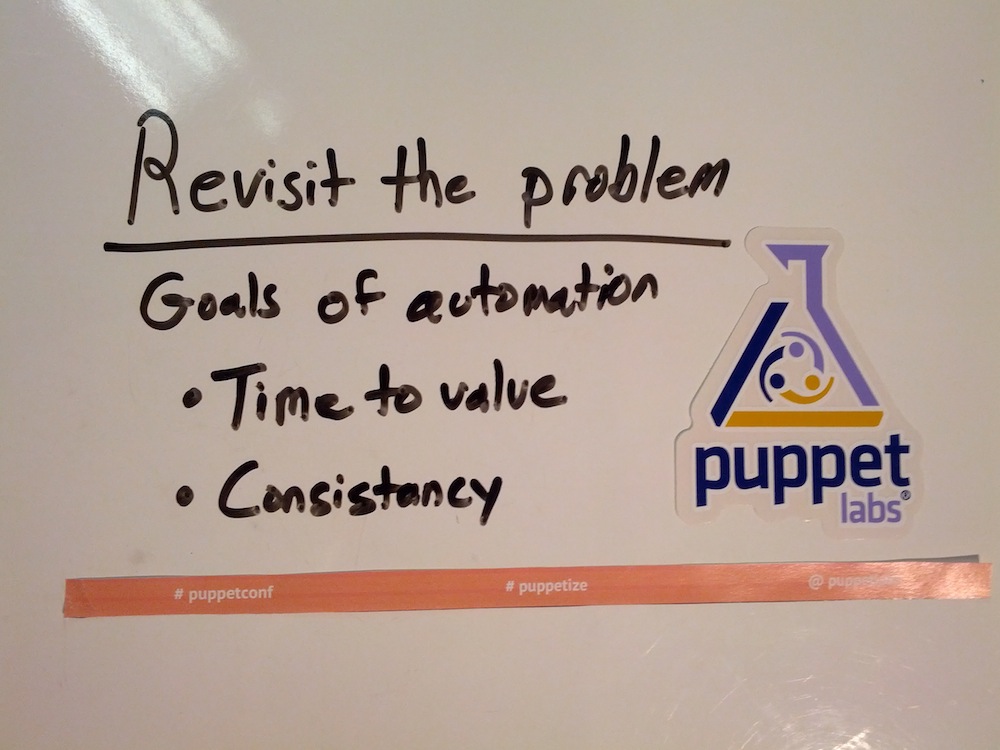 Revisit the problem
Goals of automation
• Time to value
• Consistancy
puppet
labs®
# puppetconf # puppetize